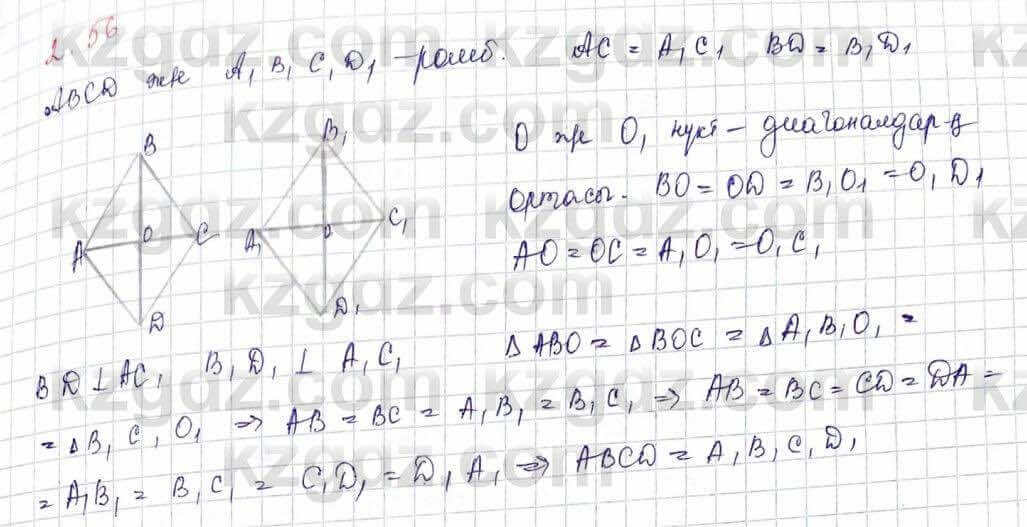 2.56
ABCD және A₁B₁C₁D₁ – ромб. AC = A₁C₁ BD = B₁D₁
O және O₁ нүкт – диагональдар-ң
ортасы. BO = OD = B₁O₁ = O₁D₁
AO = OC = A₁O₁ = O₁C₁
B B₁
A O C A₁ O C₁
D D₁
BD ⊥ AC, B₁D₁ ⊥ A₁C₁
△ABO = △BOC = △A₁B₁O₁ =
= △B₁C₁O₁ ⇒ AB = BC = A₁B₁ = B₁C₁ ⇒ AB = BC = CD = DA =
= A₁B₁ = B₁C₁ = C₁D₁ = D₁A₁ ⇒ ABCD = A₁B₁C₁D₁
kzgdz.com